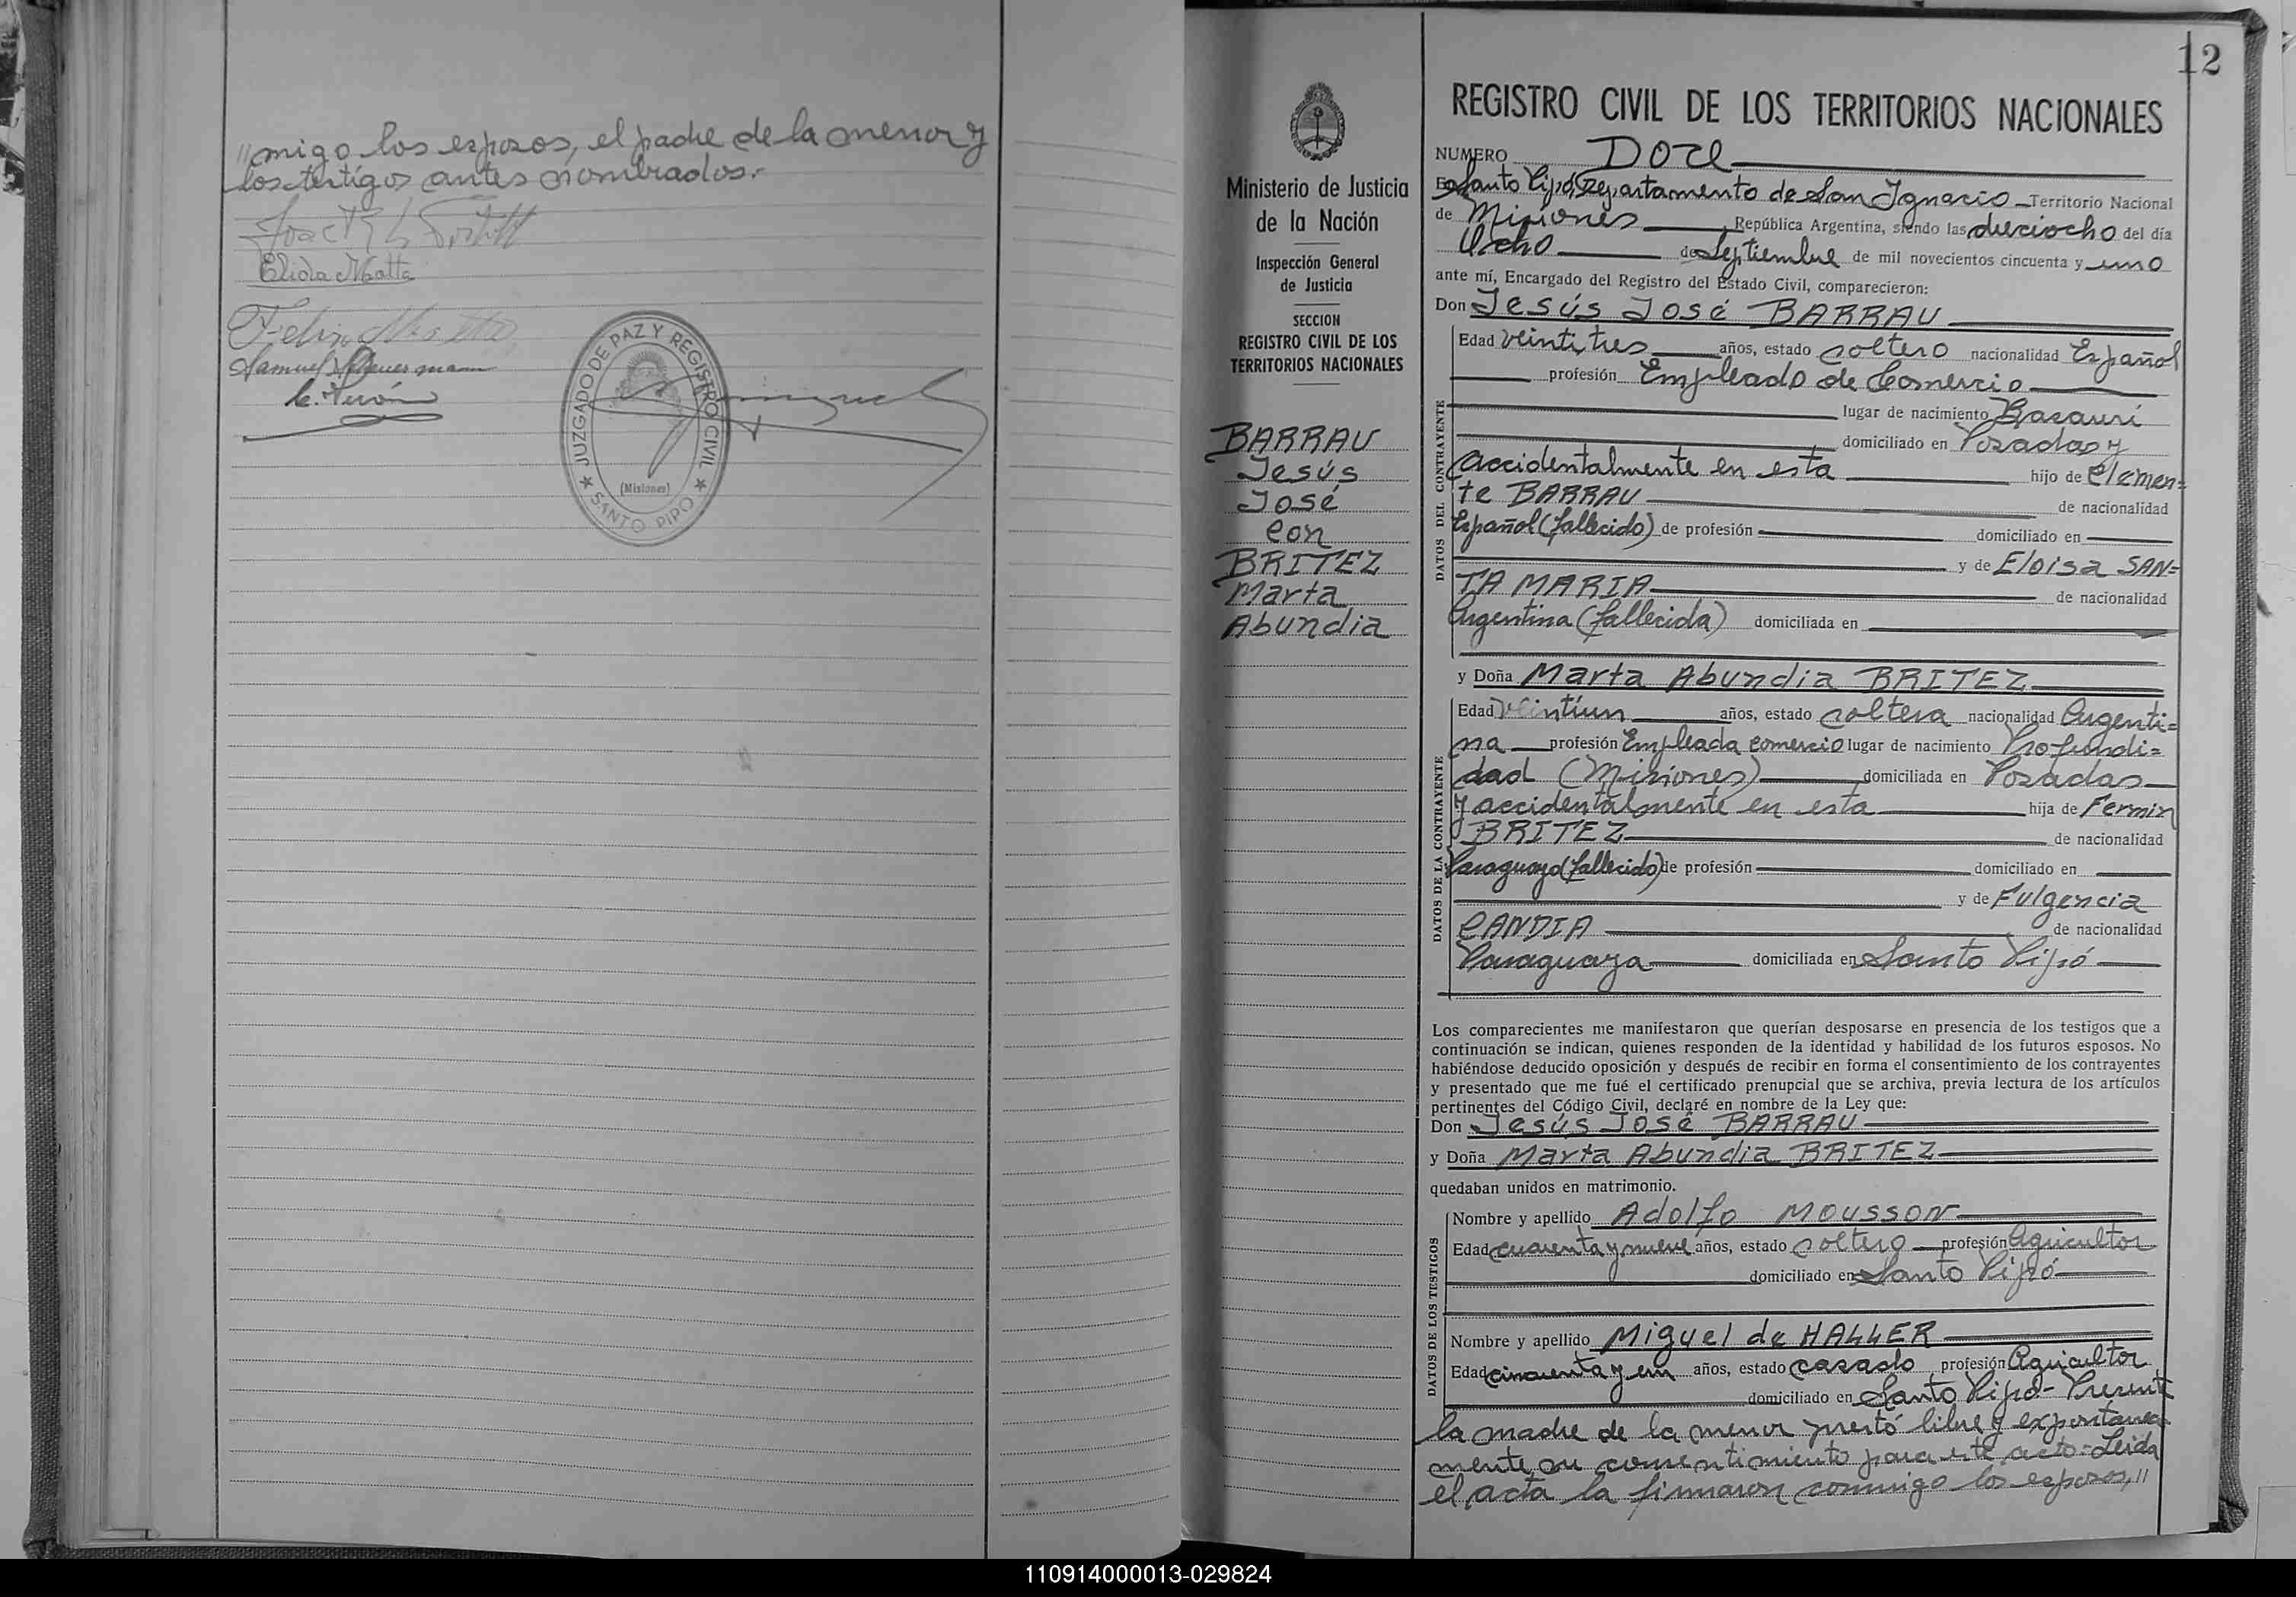 "migo los esposos, el padre de la menor y
los testigos antes nombrados.-
Elida Matta
Samuel Scheuermann
JUZGADO DE PAZ Y REGISTRO CIVIL
(Misiones)
SANTO PIPO
12
Ministerio de Justicia
de la Nación
Inspección General
de Justicia
SECCION
REGISTRO CIVIL DE LOS
TERRITORIOS NACIONALES
BARRAU
Jesús
José
con
BRITEZ
Marta
Abundia
REGISTRO CIVIL DE LOS TERRITORIOS NACIONALES
NUMERO Doce
En Santo Pipó, Departamento de San Ignacio Territorio Nacional
de Misiones República Argentina, siendo las dieciocho del día
Ocho de Septiembre de mil novecientos cincuenta y uno
ante mí, Encargado del Registro del Estado Civil, comparecieron:
Don Jesús José BARRAU
DATOS DEL CONTRAYENTE
Edad veintitres años, estado soltero nacionalidad Español
profesión Empleado de Comercio
lugar de nacimiento Basauri
domiciliado en Posadas y
accidentalmente en esta hijo de Clemen=
te BARRAU de nacionalidad
Español (fallecido) de profesión domiciliado en
y de Eloisa SAN=
TA MARIA de nacionalidad
Argentina (fallecida) domiciliada en
y Doña Marta Abundia BRITEZ
DATOS DE LA CONTRAYENTE
Edad veintiun años, estado soltera nacionalidad Argenti=
na profesión Empleada comercio lugar de nacimiento Profundi=
dad (Misiones) domiciliada en Posadas
y accidentalmente en esta hija de Fermin
BRITEZ de nacionalidad
Paraguayo (fallecido) de profesión domiciliado en
y de Fulgencia
CANDIA de nacionalidad
Paraguaya domiciliada en Santo Pipó
Los comparecientes me manifestaron que querían desposarse en presencia de los testigos que a
continuación se indican, quienes responden de la identidad y habilidad de los futuros esposos. No
habiéndose deducido oposición y después de recibir en forma el consentimiento de los contrayentes
y presentado que me fué el certificado prenupcial que se archiva, previa lectura de los artículos
pertinentes del Código Civil, declaré en nombre de la Ley que:
Don Jesús José BARRAU
y Doña Marta Abundia BRITEZ
quedaban unidos en matrimonio.
DATOS DE LOS TESTIGOS
Nombre y apellido Adolfo MOUSSON
Edad cuarenta y nueve años, estado soltero profesión Agricultor
domiciliado en Santo Pipó
Nombre y apellido Miguel de HALLER
Edad cincuenta y un años, estado casado profesión Agricultor
domiciliado en Santo Pipó- Presente
la madre de la menor prestó libre y expontanea
mente su consentimiento para este acto- Leida
el acta la firmaron conmigo los esposos, "
110914000013-029824